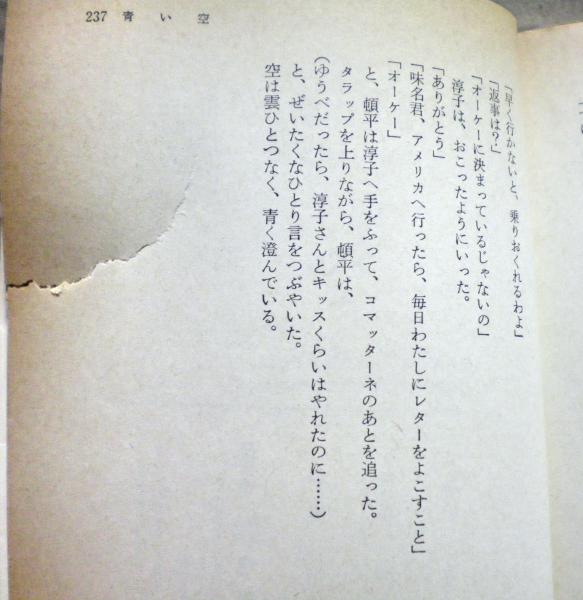 237 青い空
「早く行かないと、乗りおくれるわよ」
「返事は?」
「オーケーに決まっているじゃないの」
淳子は、おこったようにいった。
「ありがとう」
「味名君、アメリカへ行ったら、毎日わたしにレターをよこすこと」
「オーケー」
と、頓平は淳子へ手をふって、コマッターネのあとを追った。
タラップを上りながら、頓平は、
(ゆうべだったら、淳子さんとキッスくらいはやれたのに……)
と、ぜいたくなひとり言をつぶやいた。
空は雲ひとつなく、青く澄んでいる。